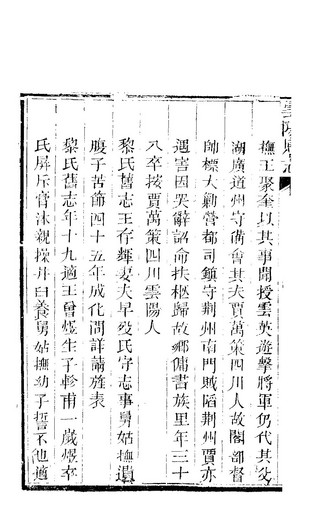 撫王聚奎以其事聞授雲英遊擊將軍仍代其父
湖廣道州守備會其夫賈萬策四川人故閣部督
帥標大勦營都司鎮守荆州南門賊陷荆州賈亦
遇害因哭辭詔命扶柩歸故鄉傭書族里年三十
八卒按賈萬策四川雲陽人
黎氏舊志王存輝妻夫早歿氏守志事舅姑撫遺
腹子苦節四十五年成化間詳請旌表
黎氏舊志年十九適王曾煜生子軫甫一歲煜卒
氏屏斥膏沐親操井臼養舅姑撫幼子誓不他適